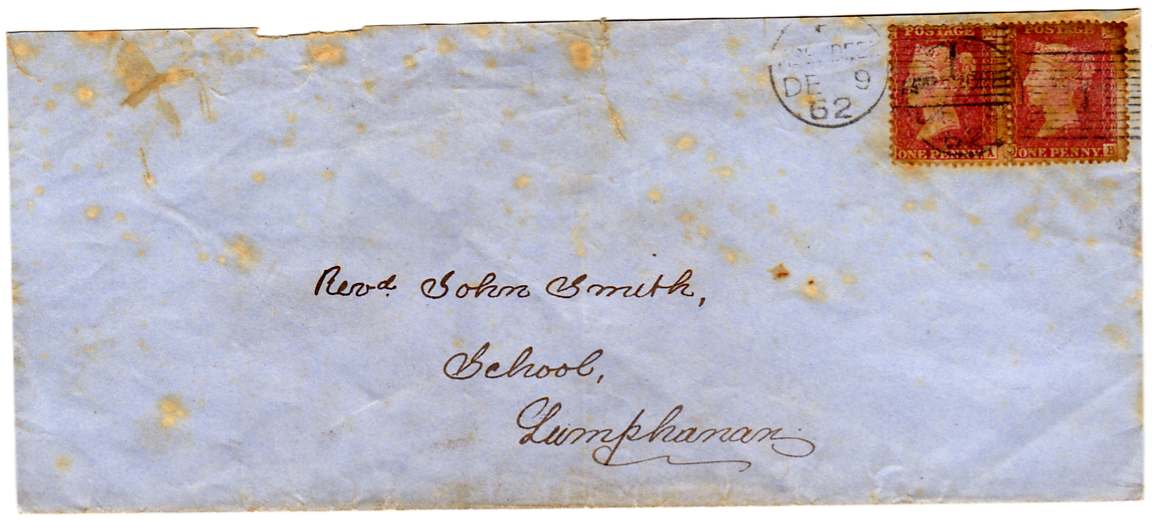 POSTAGE POSTAGE
DE 9
62
ONE PENNY A ONE PENNY B
1 1
Revd. John Smith,
School,
Lumphanan